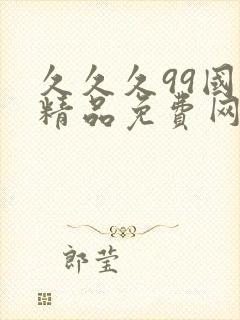 久久久99國
精品免費网
郎莹